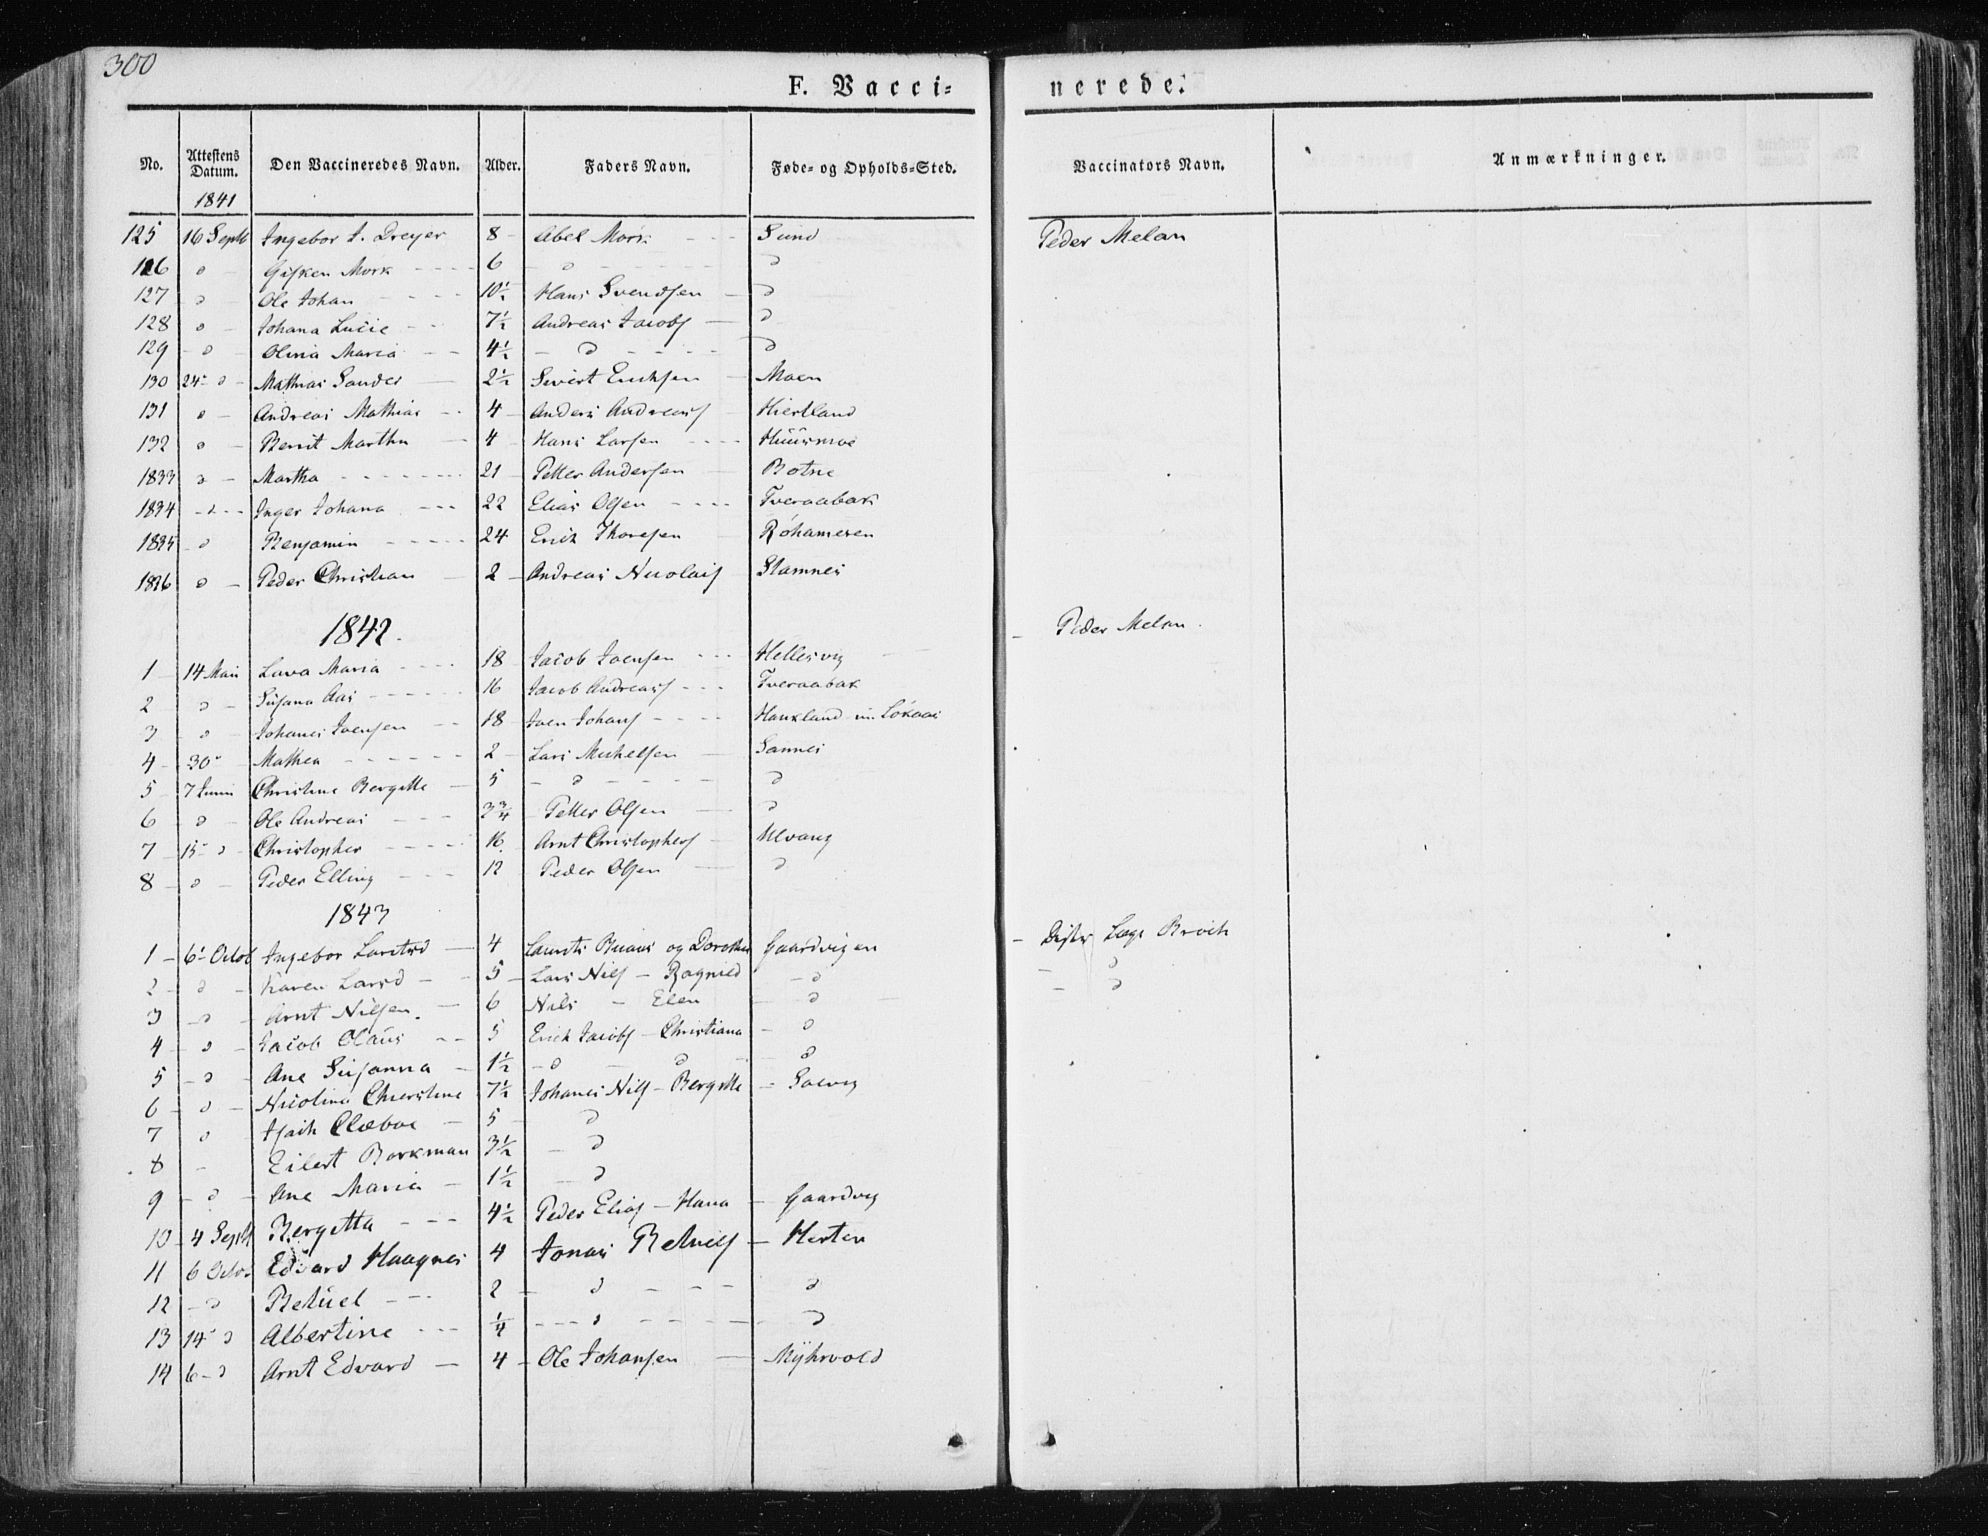 300
F. Vacci=
nerede.
No. Attestens Datum. Den Vaccineredes Navn. Alder. Faders Navn. Føde- og Opholds-Sted. Vaccinators Navn. Anmærkninger.
1841
125 16 Septb Ingebor J. Dreyer 8 Abel Mork Sund Peder Melan
126 d Gisken Mork 6 d d
127 d Ole Johan 10½ Hans Svendsen d
128 d Johana Lucie 7½ Andreas Jacobs d
129 d Olina Maria 4½ d d
130 24 d Mathias Sander 2½ Sivert Erichsen Moen
131 d Andreas Mathias 4 Anders Andreas Hiertland
132 d Berrit Martha 4 Hans Larsen Huusmoe
1833 d Martha 21 Petter Andersen Botne
1834 d Inger Johana 22 Elias Olsen Tveraabak
1835 d Benjamin 24 Erich Thoresen Røhameren
1836 d Peder Christian 2 Andreas Nicolais Stamnes
1842. Peder Melan.
1 14 Mai Lava Maria 18 Jacob Joensen Hellesvig
2 d Susana Aas 16 Jacob Andreas Tveraabak
3 d Johanes Joensen 18 Joen Johans Hauxland Løkaas
4 30 Mathea 2 Lars Michelsen Sannes
5 7 Junii Christine Bergitte 5 d d
6 d Ole Andreas 3¾ Petter Olsen d
7 15 d Christopher 16 Arnt Christophers Ulvang
8 d Peder Elling 12 Peder Olsen d
1843
1 6 Octob Ingebor 4 og Dorothea Gaardvigen Læge Broch
2 d Karen Larsd 5 Lars Nils Ragnild d d
3 d Arnt Nilsen. 6 Nils Elen d d
4 d Jacob Olaus 5 Erich Jacobs Christiana d
5 d Ane Susanna 1½ d d d
6 d Nicolina Chierstine 7½ Johanes Nils Bergitte Solvig
7 d 5 d
8 Eilert Borkman 3½ d
9 d Ane Maria 1½ d
10 4 Septb Bergitta 4½ Peder Elias Hana Gaardvig
11 6 Octob Edvard Haagnes 4 Jonas Betuels Herten
12 d Betuel 2 d d
13 14 d Albertine ¼ d d
14 6 d Arnt Edvard 4 Ole Johansen Myhrvold